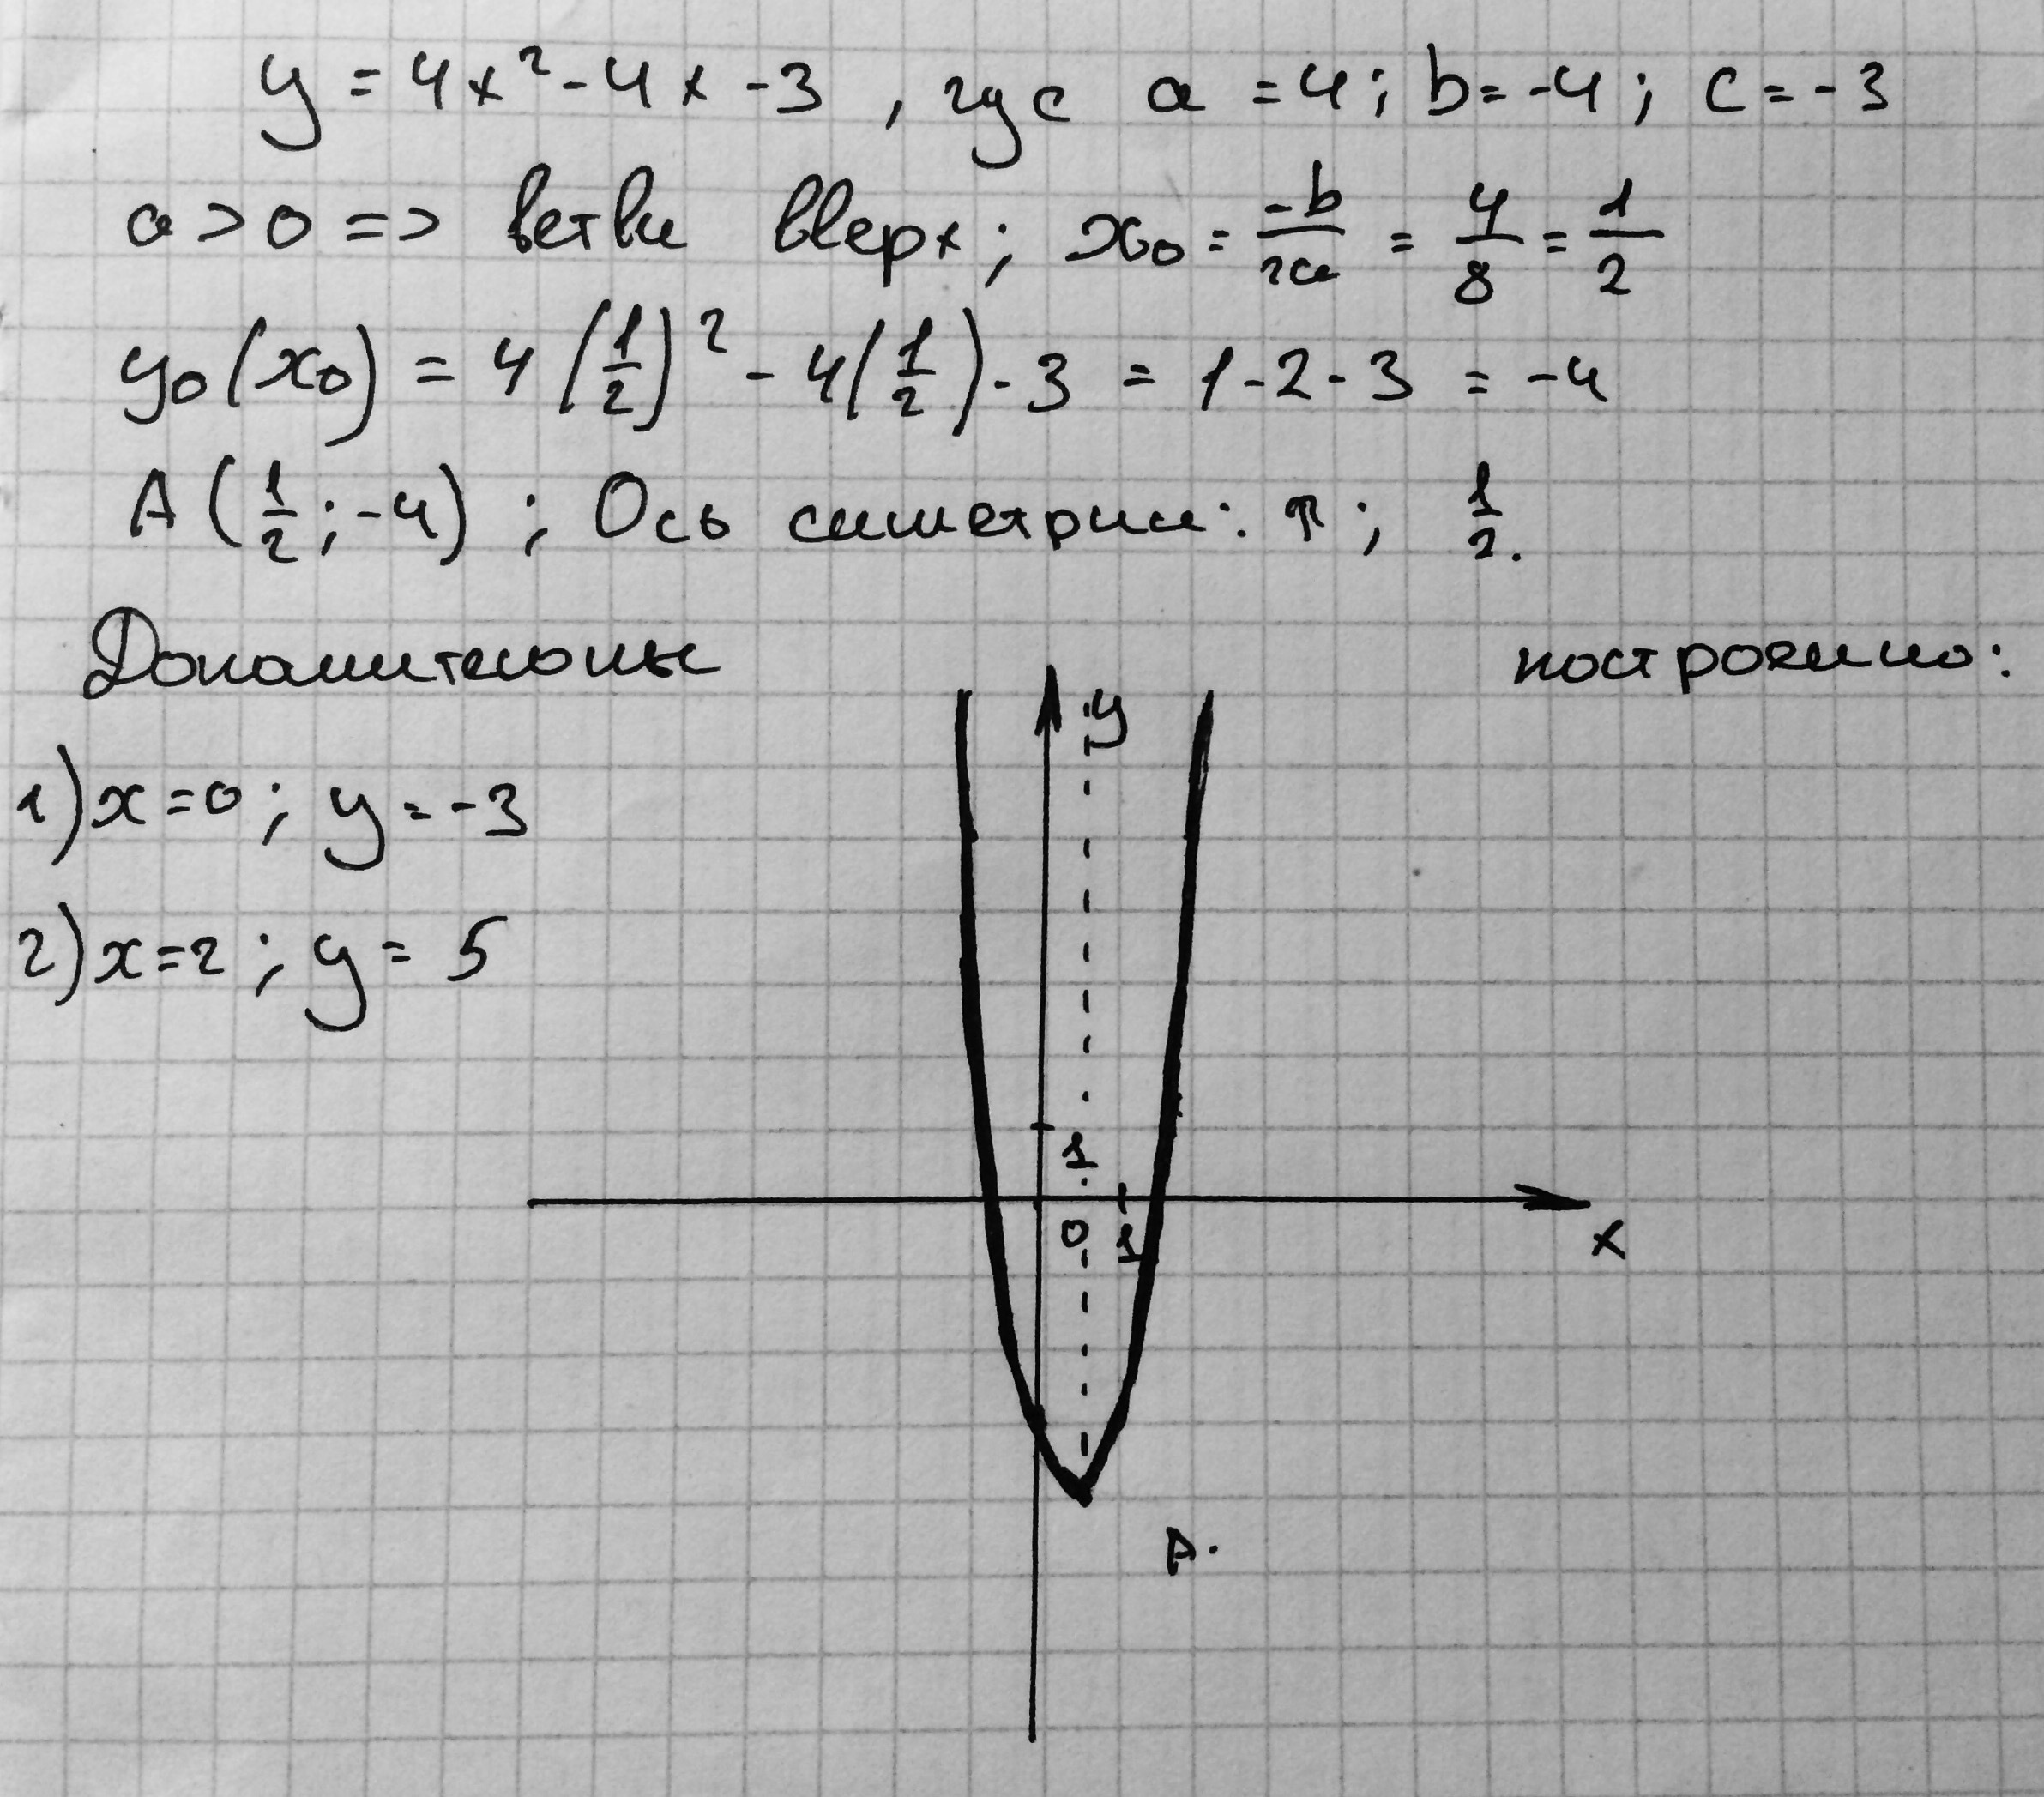 y = 4x² - 4x - 3, где a = 4; b = -4; c = -3
a > 0 => ветви вверх; x₀ = -b/2a = 4/8 = 1/2
y₀(x₀) = 4(1/2)² - 4(1/2) - 3 = 1 - 2 - 3 = -4
A(1/2; -4); Ось симетрии: ; 1/2.
построено:
1) x = 0; y = -3
2) x = 2; y = 5
y
1
0 1
x
A.